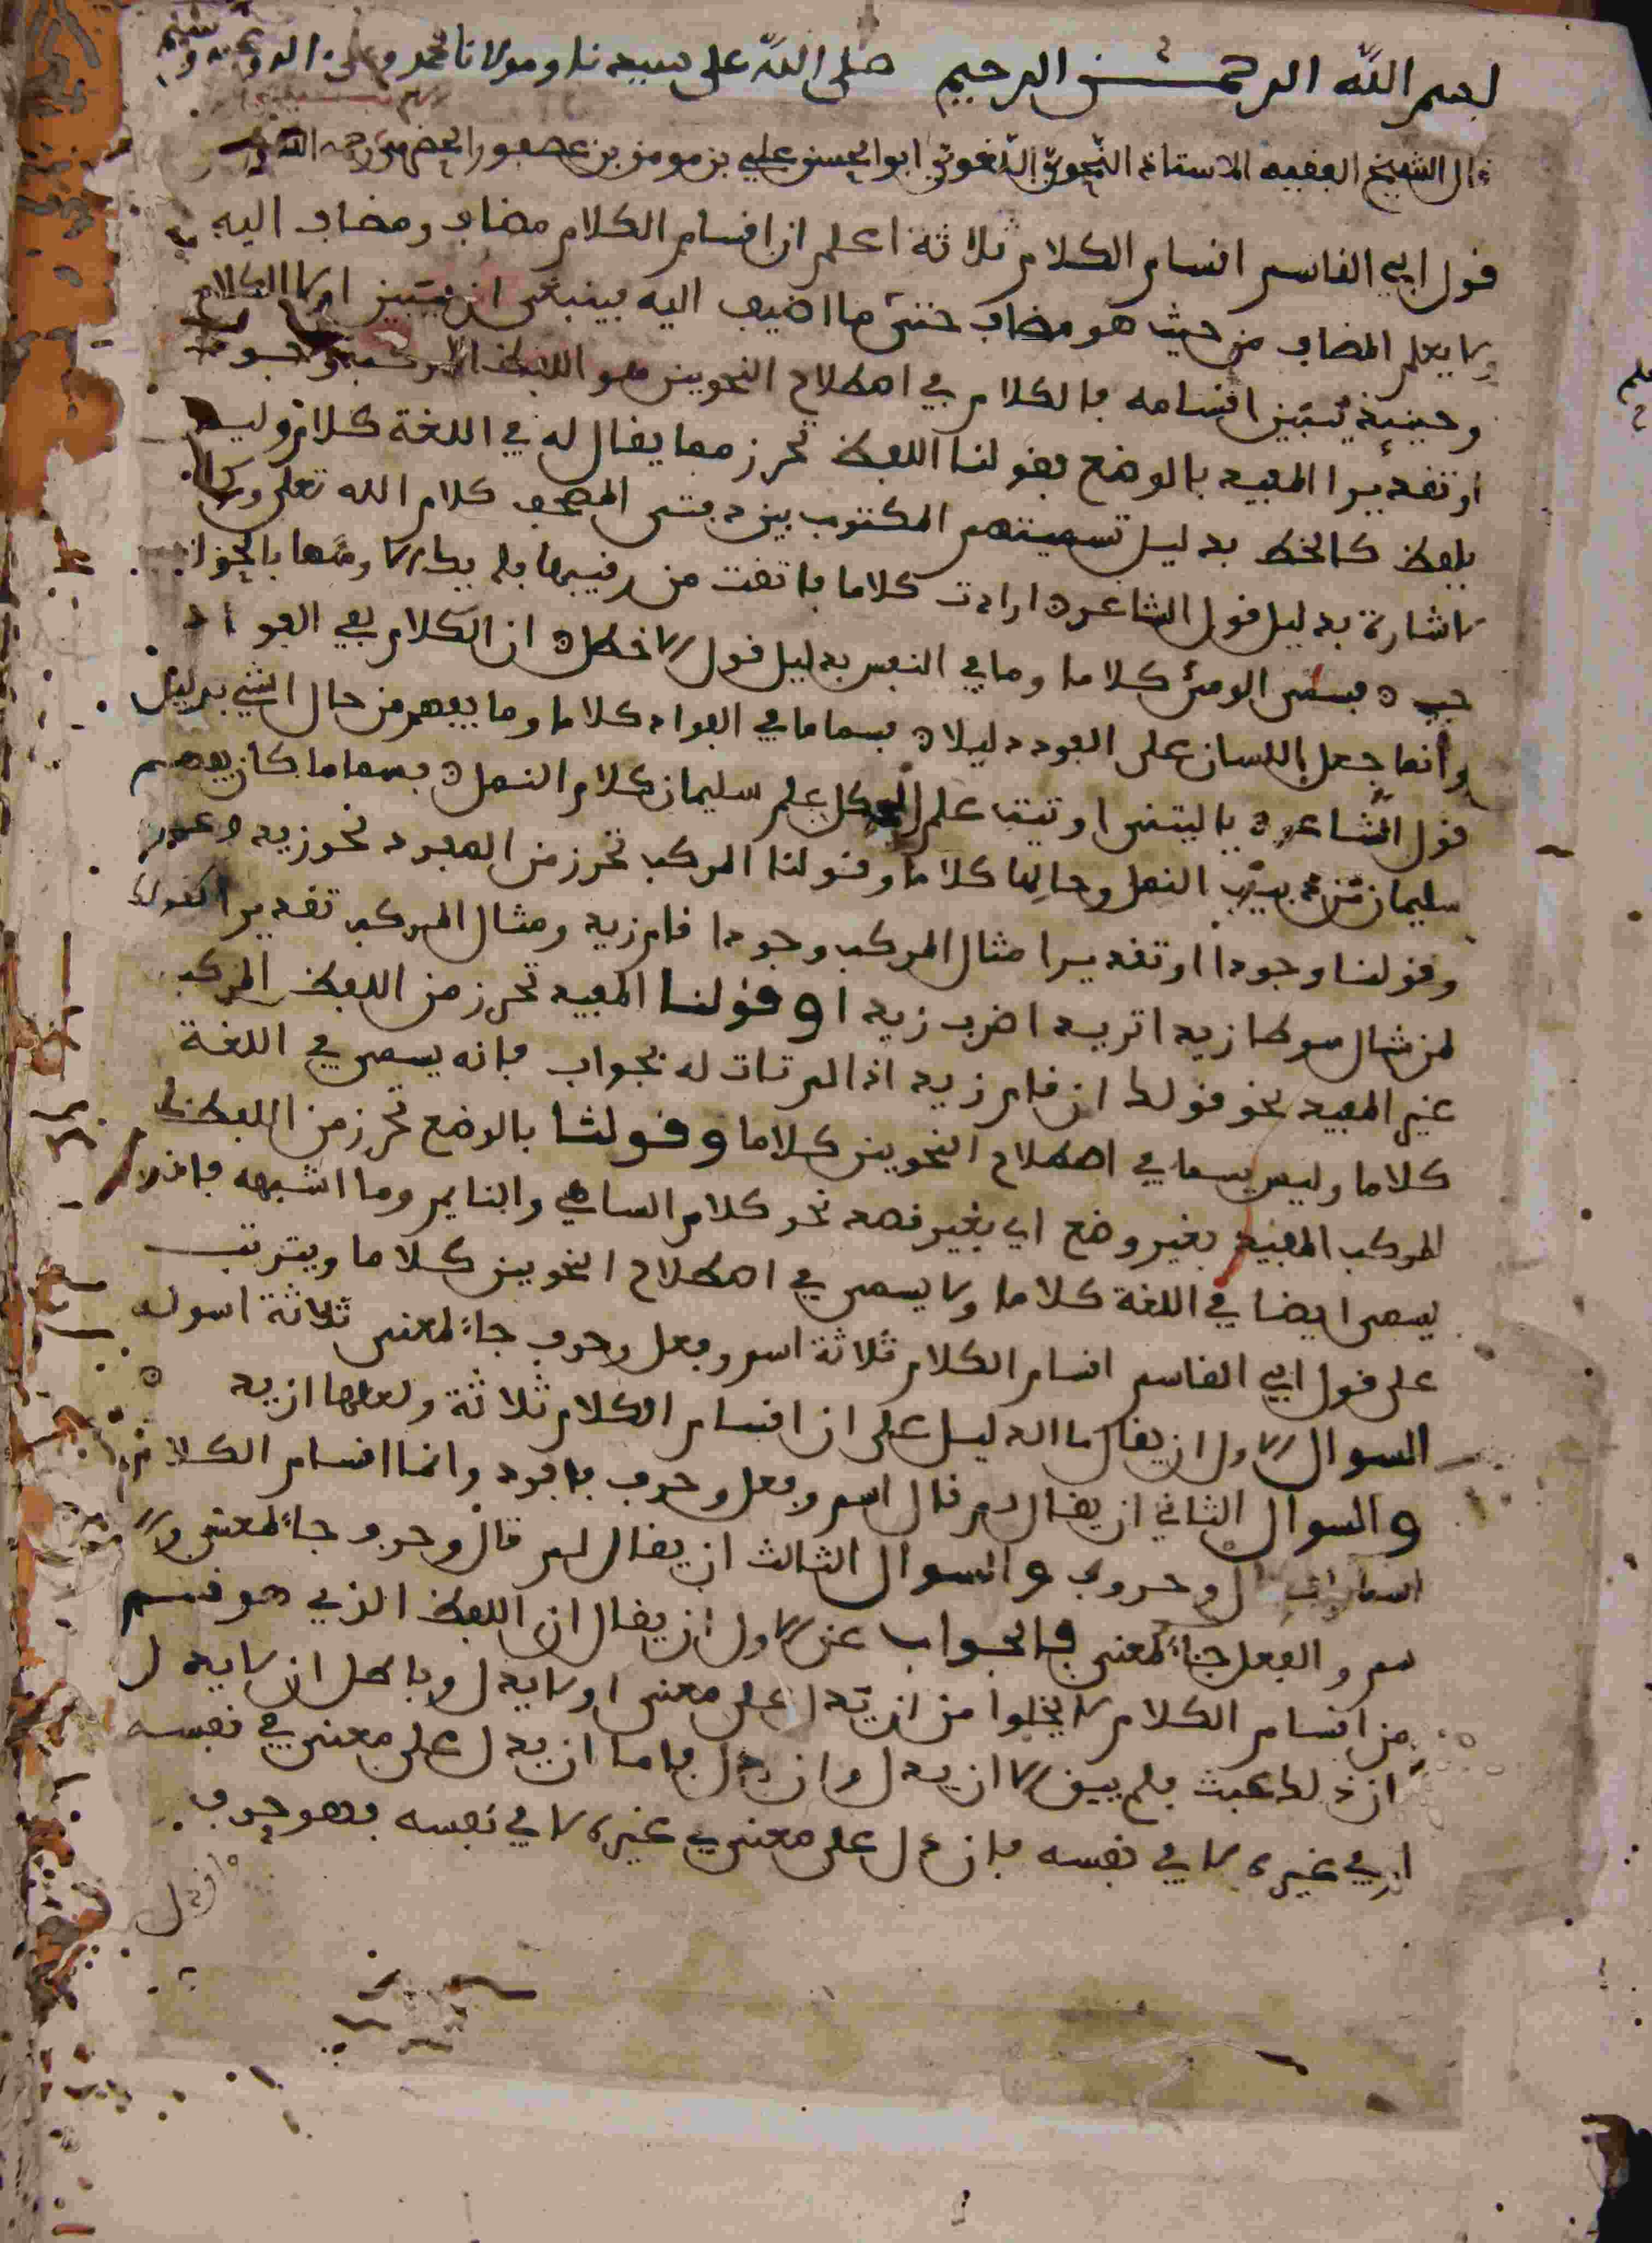 بسم الله الرحمن الرحيم صلى الله على سيدنا ومولانا محمد وعلى اله وصحبه وسلم
قال الشيخ الفقيه الاستاذ النحوي اللغوي ابو الحسن علي بن مومن بن عصفور الحضرمي رحمه الله
قول ابي القاسم اقسام الكلام ثلاثة اعلم ان اقسام الكلام مضاف ومضاف اليه
ولا يعلم المضاف من حيث هو مضاف حتى ما اضيف اليه فينبغي ان يتبين اولا الكلام
وحينئذ يتبين اقسامه فالكلام في اصطلاح النحوين هو اللفظ المركب وجودا
او تقديرا المفيد بالوضع فقولنا اللفظ تحرز مما يقال له في اللغة كلام وليس
بلفظ كالخط بدليل تسميتهم المكتوب بين دفتي المصحف كلام الله تعلى وكا
لاشارة بدليل قول الشاعر ارادت كلاما فاتقت من رقيبها فلم يك الا ومئها بالحواـ
جب فسمى الومئ كلاما وما في النفس بدليل قول الاخطل ان الكلام لفي الفواد
وانما جعل اللسان على الفودد ليلا فسما ما في الفواد كلاما وما يفهم من حال الشي بدليل
قول الشاعر ياليتني اوتيت علم الحكل علم سليمان كلام النمل فسما ما كان يفهم
سليمان من دبيب النمل وحالها كلاما وقولنا المركب تحرز من المفرد نحو زيد وعمرو
وقولنا وجودا او تقديرا مثال المركب وجودا قام زيد ومثال المركب تقديرا كقولك
لمن شال سوطا زيد اتريد اضرب زيدا وقولنا المفيد تحرز من اللفظ المركب
غير المفيد نحو قولك ان قام زيد اذا لم تات له بجواب فانه يسمى في اللغة
كلاما وليس يسما في اصطلاح النحوين كلاما وقولنا بالوضع تحرز من اللفظ
المركب المفيد بغير وضع اي بغير قصد نحو كلام الساهي والنايم وما اشبهه فانه
يسمى ايضا في اللغة كلاما ولا يسمى في اصطلاح النحوين كلاما ويترتب
على قول ابي القاسم اقسام الكلام ثلاثة اسم وفعل وحرف جاء لمعنى ثلاثة اسولة
السوال الاول ان يقال ما الدليل على ان اقسام الكلام ثلاثة ولعلها ازيد
والسوال الثاني ان يقال لم قال اسم وفعل وحرف فافرد وانما اقسام الكلام
اسما وافعال وحروف والسوال الثالث ان يقال لم قال وحرف جاء لمعنى والا
سم والفعل جاء لمعنى فالجواب عن الاول ان يقال ان اللفظ الذي هو قسم
من اقسام الكلام لا يخلوا من ان يدل على معنى او لا يدل وباطل ان لا يدل
ان ذلك عبث فلم يبق الا ان يدل وان دل فاما ان يدل على معنى في نفسه
او في غيره لا في نفسه فان دل على معنى في غيره لا في نفسه فهو حرف
وان دل